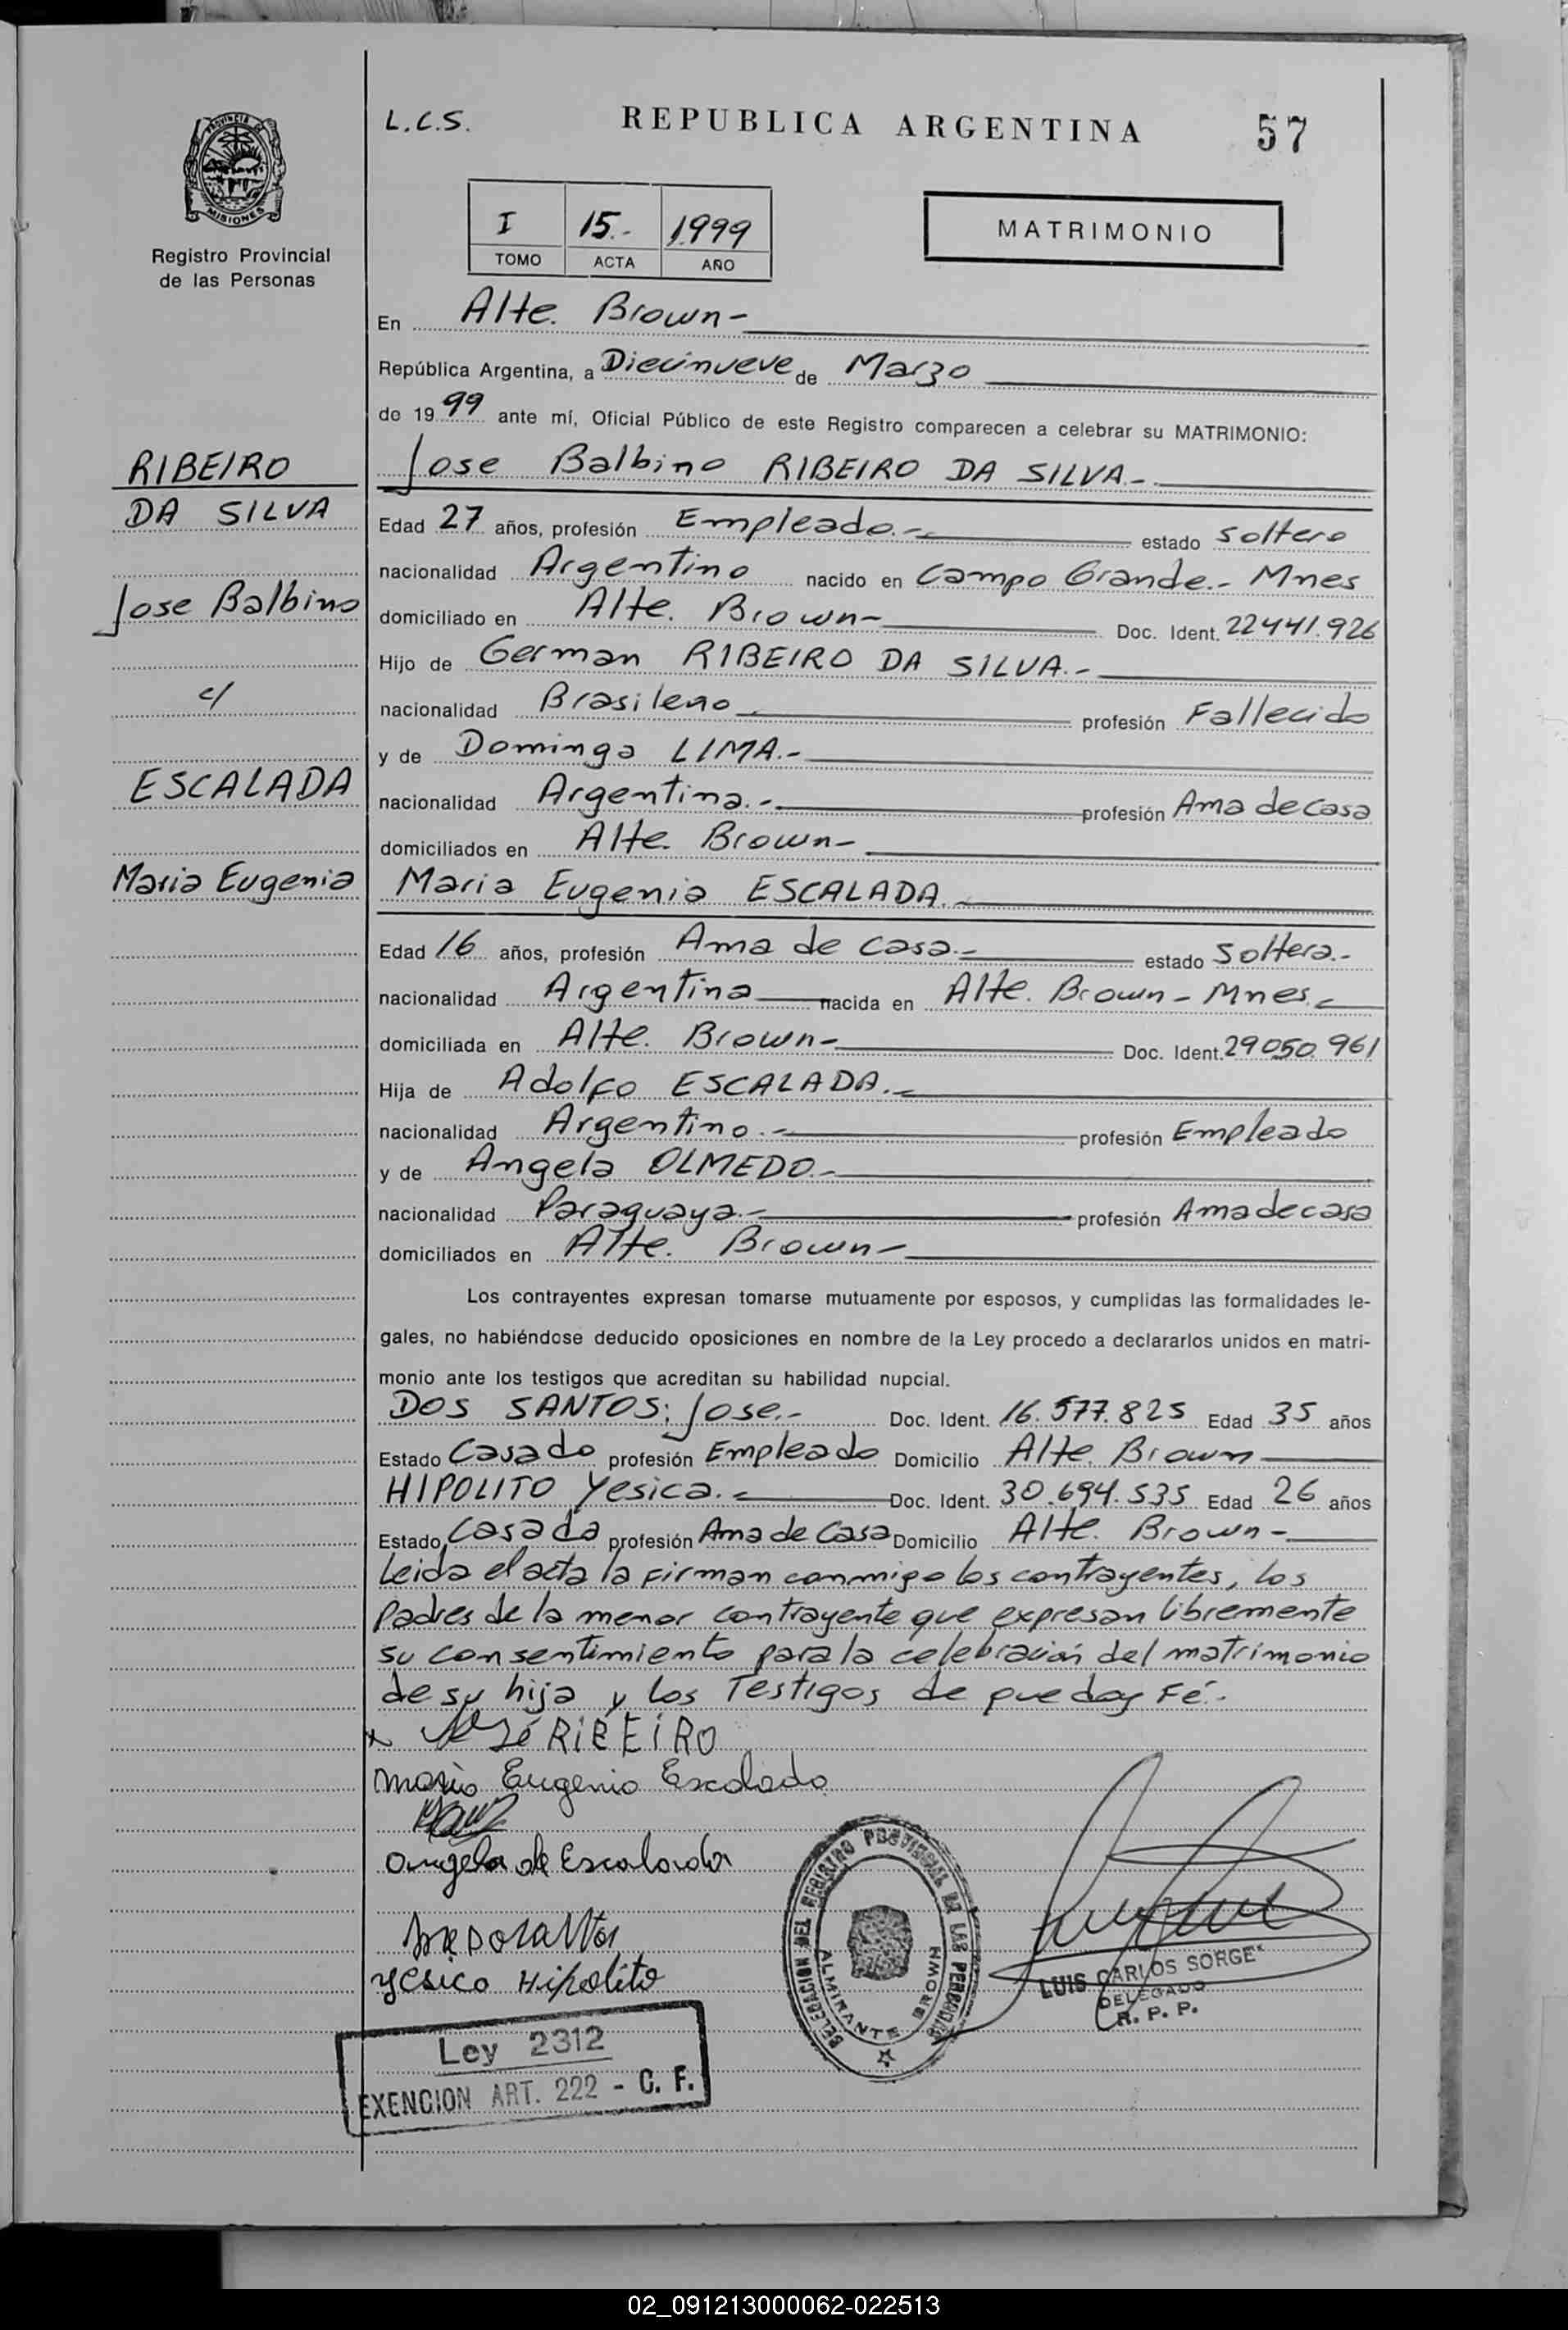 L.C.S.
REPUBLICA ARGENTINA
57
PROVINCIA DE
MISIONES
Registro Provincial
de las Personas
I 15.- 1999
TOMO ACTA AÑO
MATRIMONIO
En Alte. Brown-
República Argentina, a Diecinueve de Marzo
de 19 99 ante mí, Oficial Público de este Registro comparecen a celebrar su MATRIMONIO:
RIBEIRO
DA SILVA
Jose Balbino
c/
ESCALADA
Maria Eugenia
Jose Balbino RIBEIRO DA SILVA.-
Edad 27 años, profesión Empleado.- estado Soltero
nacionalidad Argentino nacido en Campo Grande.- Mnes
domiciliado en Alte. Brown- Doc. Ident. 22441.926
Hijo de German RIBEIRO DA SILVA.-
nacionalidad Brasileno profesión Fallecido
y de Dominga LIMA.-
nacionalidad Argentina.- profesión Ama de casa
domiciliados en Alte. Brown-
Maria Eugenia ESCALADA.
Edad 16 años, profesión Ama de casa.- estado Soltera.-
nacionalidad Argentina nacida en Alte. Brown- Mnes.-
domiciliada en Alte. Brown- Doc. Ident. 29050.961
Hija de Adolfo ESCALADA.-
nacionalidad Argentino.- profesión Empleado
y de Angela OLMEDO.-
nacionalidad Paraguaya.- profesión Ama de casa
domiciliados en Alte. Brown-
Los contrayentes expresan tomarse mutuamente por esposos, y cumplidas las formalidades le-
gales, no habiéndose deducido oposiciones en nombre de la Ley procedo a declararlos unidos en matri-
monio ante los testigos que acreditan su habilidad nupcial.
DOS SANTOS; Jose.- Doc. Ident. 16.577.825 Edad 35 años
Estado Casado profesión Empleado Domicilio Alte. Brown
HIPOLITO Yesica.- Doc. Ident. 30.694.535 Edad 26 años
Estado Casada profesión Ama de Casa Domicilio Alte. Brown-
Leida el acta la firman conmigo los contrayentes, los
padres de la menor contrayente que expresan libremente
su consentimiento para la celebración del matrimonio
de su hija y los Testigos de que doy Fé.-
José RIBEIRO
Maria Eugenia Escalada
Angela de Escalada
Yesica Hipolito
DELEGACION DEL REGISTRO PROVINCIAL DE LAS PERSONAS
ALMIRANTE BROWN
LUIS CARLOS SORGE
DELEGADO
R. P. P.
Ley 2312
EXENCION ART. 222 - C. F.
02_091213000062-022513